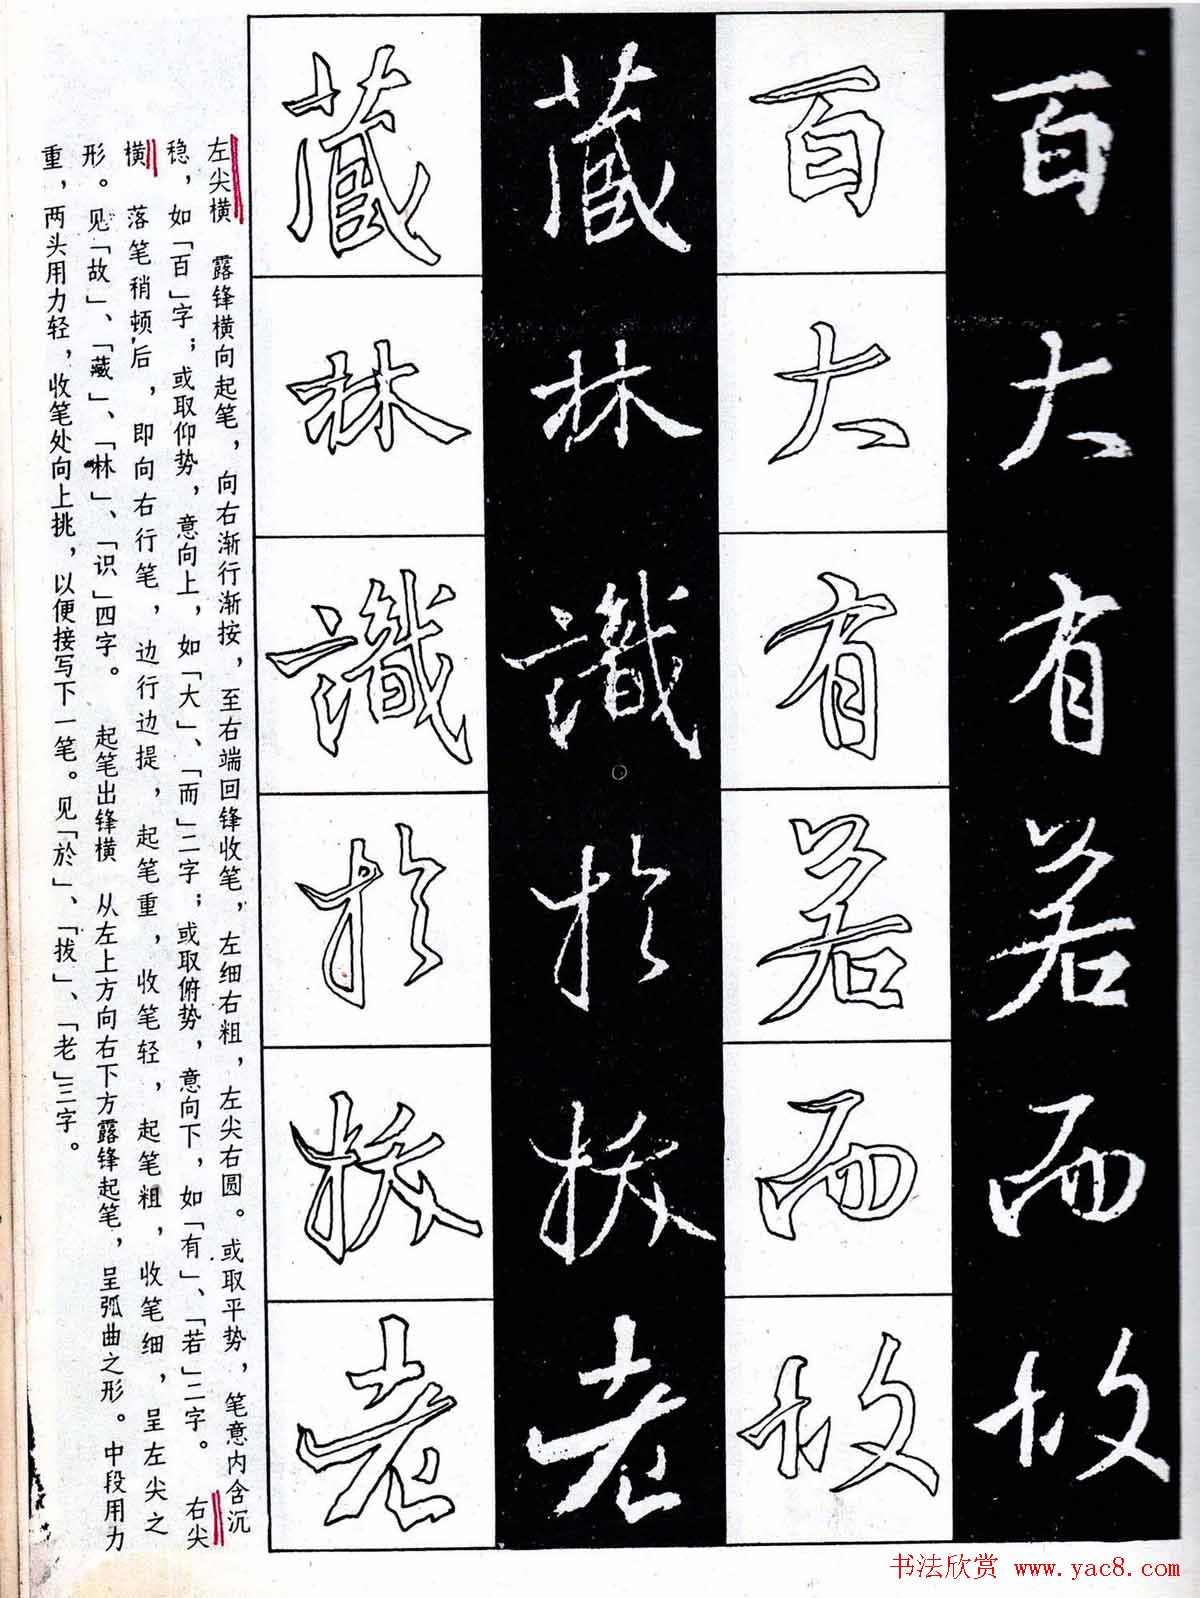 百大有若而故
百大有若而故
藏林識於拔老
藏林識於拔老
左尖横　露锋横向起笔，向右渐行渐按，至右端回锋收笔，左细右粗，左尖右圆。或取平势，笔意内含沉
稳，如「百」字；或取仰势，意向上，如「大」、「而」二字；或取俯势，意向下，如「有」、「若」二字。　右尖
横　落笔稍顿后，即向右行笔，边行边提，起笔重，收笔轻，起笔粗，收笔细，呈左尖之
形。见「故」、「藏」、「林」、「识」四字。　起笔出锋横　从左上方向右下方露锋起笔，呈弧曲之形。中段用力
重，两头用力轻，收笔处向上挑，以便接写下一笔。见「於」、「拔」、「老」三字。
书法欣赏 www.yac8.com